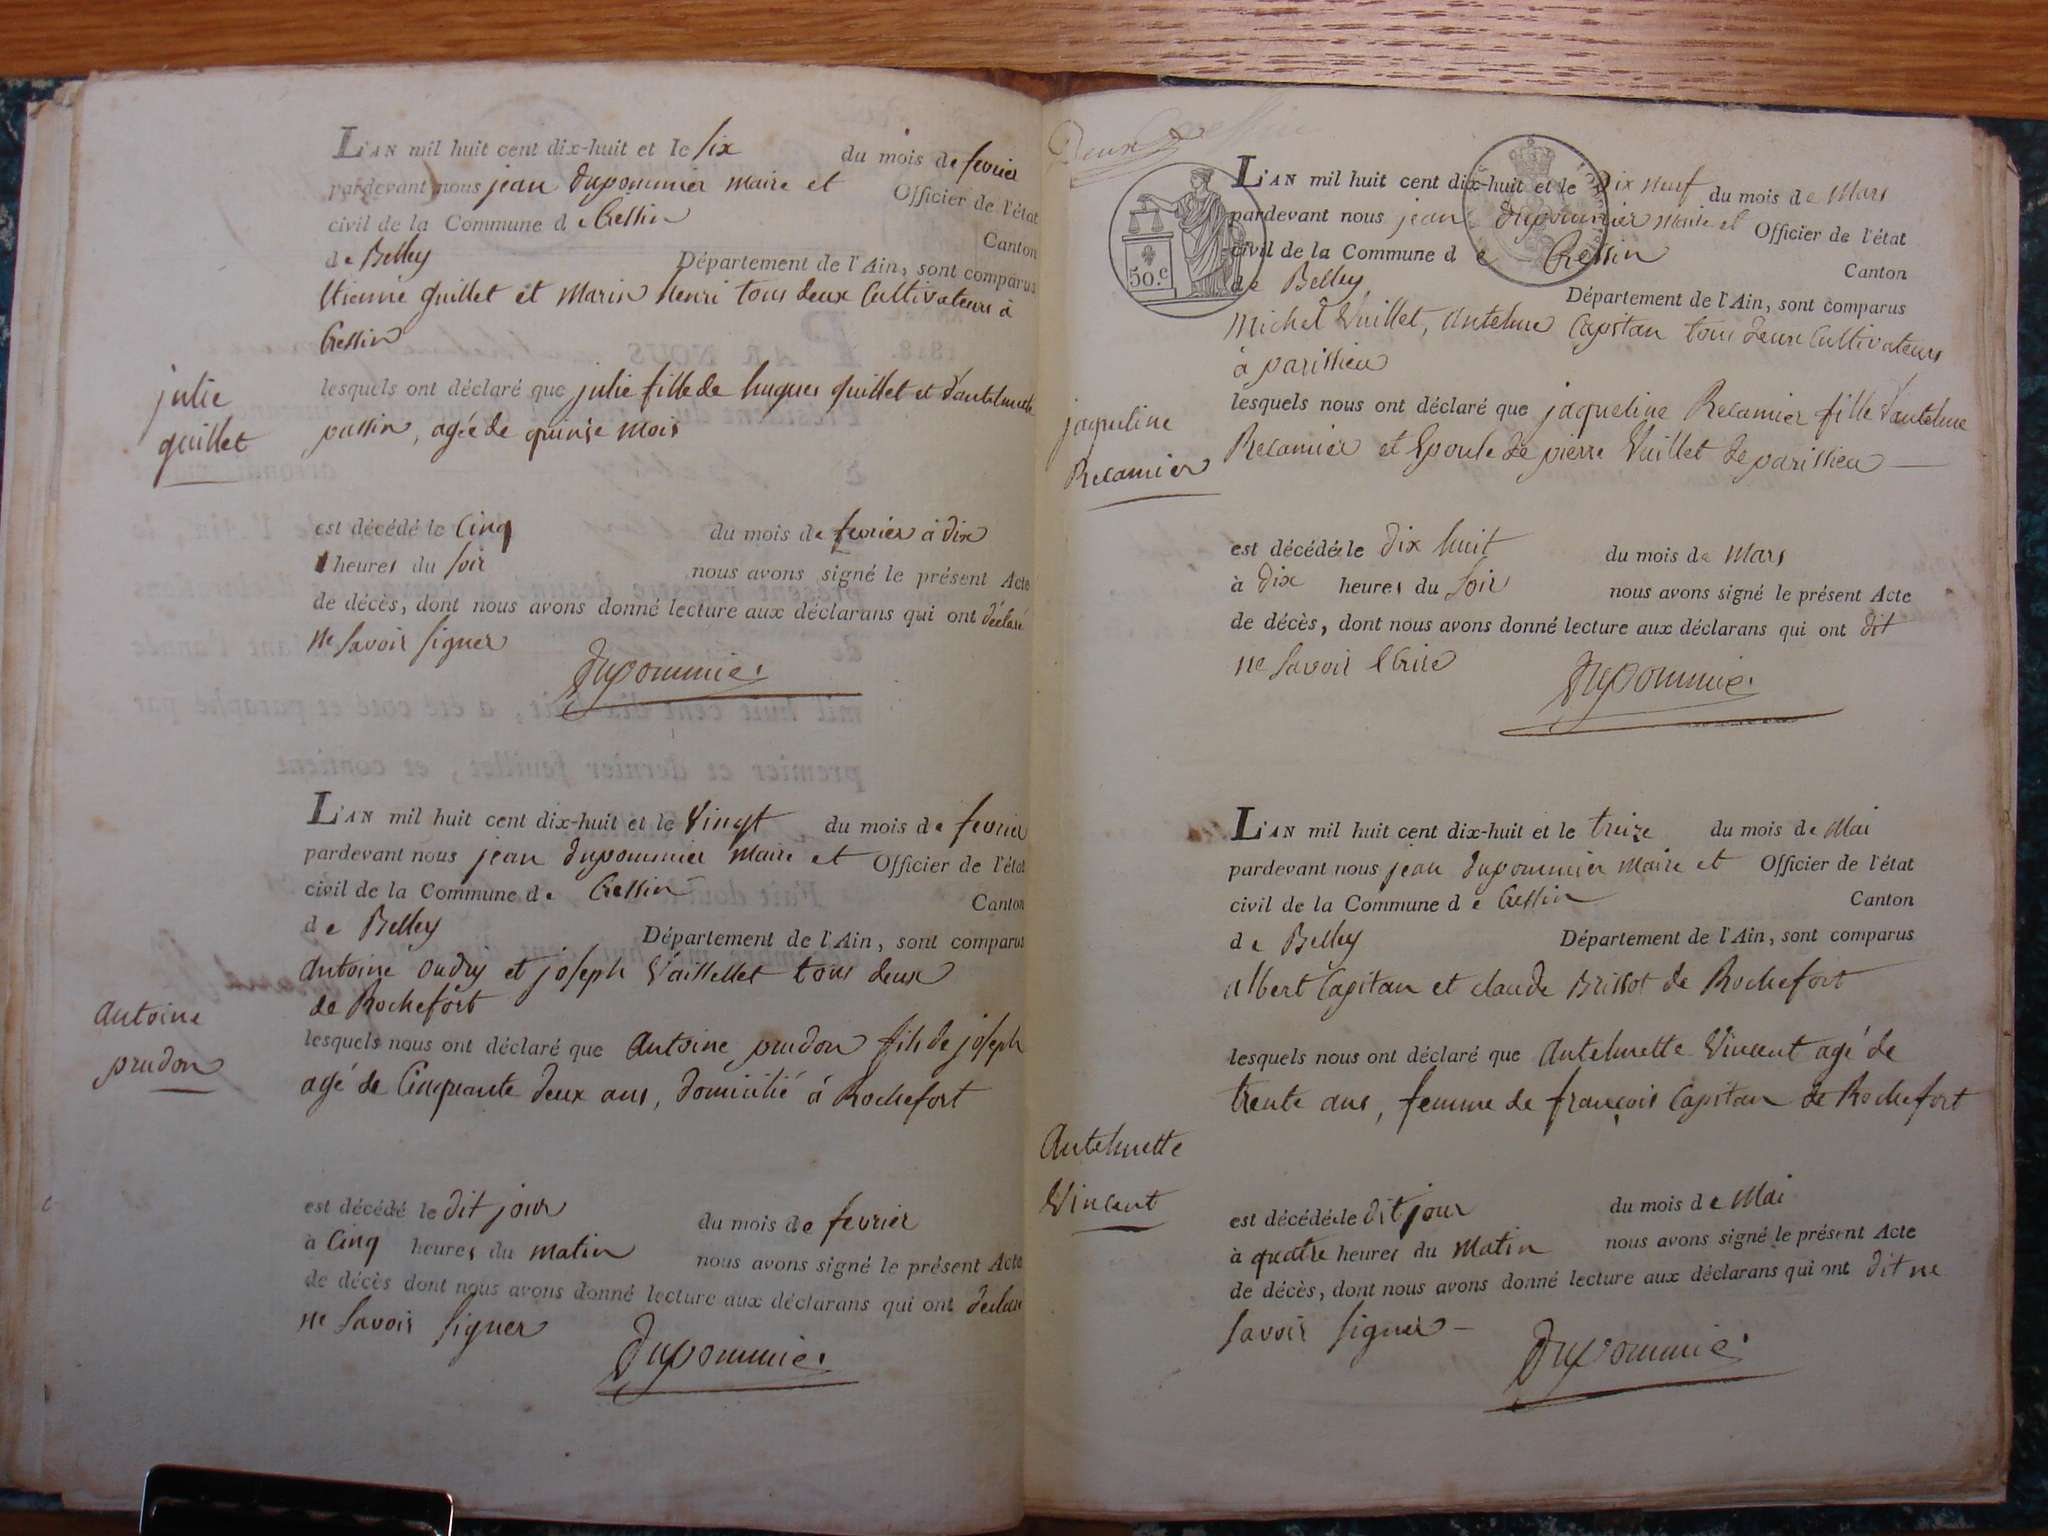 L'AN mil huit cent dix-huit et le six du mois de fevrier
pardevant nous jean dupommier maire et Officier de l'état
civil de la Commune de Cressin Canton
de Belley Département de l'Ain, sont comparus
Etienne guillet et marin henri tous deux Cultivateurs à
Cressin
julie
guillet
lesquels ont déclaré que julie fille de hugues guillet et d'antelmette
passin, agée de quinse mois
est décédé le Cinq du mois de fevrier à dix
heures du soir nous avons signé le présent Acte
de décès, dont nous avons donné lecture aux déclarans qui ont déclaré
ne savoir signer
dupommier
L'AN mil huit cent dix-huit et le vingt du mois de fevrier
pardevant nous jean dupommier maire et Officier de l'état
civil de la Commune de Cressin Canton
de Belley Département de l'Ain, sont comparus
antoine oudry et joseph Vaillellet tous deux
de Rochefort
antoine
prudon
lesquels nous ont déclaré que antoine prudon fils de joseph
agé de Cinquante deux ans, domicilié à Rochefort
est décédé le dit jour du mois de fevrier
à Cinq heures du matin nous avons signé le présent Acte
de décès dont nous avons donné lecture aux déclarans qui ont declare
ne savoir signer
dupommier
Deux
50.c
L'AN mil huit cent dix-huit et le dix neuf du mois de Mars
pardevant nous jean dupommier maire et Officier de l'état
civil de la Commune de Cressin Canton
de Belley Département de l'Ain, sont comparus
michel Vuillet, antelme Capitan tous deux Cultivateurs
à parissieu
jaqueline
Recamier
lesquels nous ont déclaré que jaqueline Recamier fille d'antelme
Recamier et Epouse de pierre Vuillet de parissieu
est décédée le dix huit du mois de Mars
à dix heures du soir nous avons signé le présent Acte
de décès, dont nous avons donné lecture aux déclarans qui ont dit
ne savoir Ecrire
dupommier
L'AN mil huit cent dix-huit et le treize du mois de Mai
pardevant nous jean dupommier maire et Officier de l'état
civil de la Commune de Cressin Canton
de Belley Département de l'Ain, sont comparus
albert Capitan et claude Brissot de Rochefort
lesquels nous ont déclaré que antelmette Vincent agé de
trente ans, femme de françois Capitan de Rochefort
Antelmette
Vincent
est décédée le dit jour du mois de Mai
à quatre heures du matin nous avons signé le présent Acte
de décès, dont nous avons donné lecture aux déclarans qui ont dit ne
savoir signer
dupommier